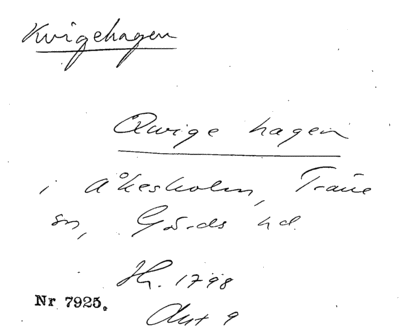 Kvigehagen
Qvige hagen
i Åkesholm, Trane
sn, Gärds hd.
Hr. 1798
Nr 7925.
Akt 9